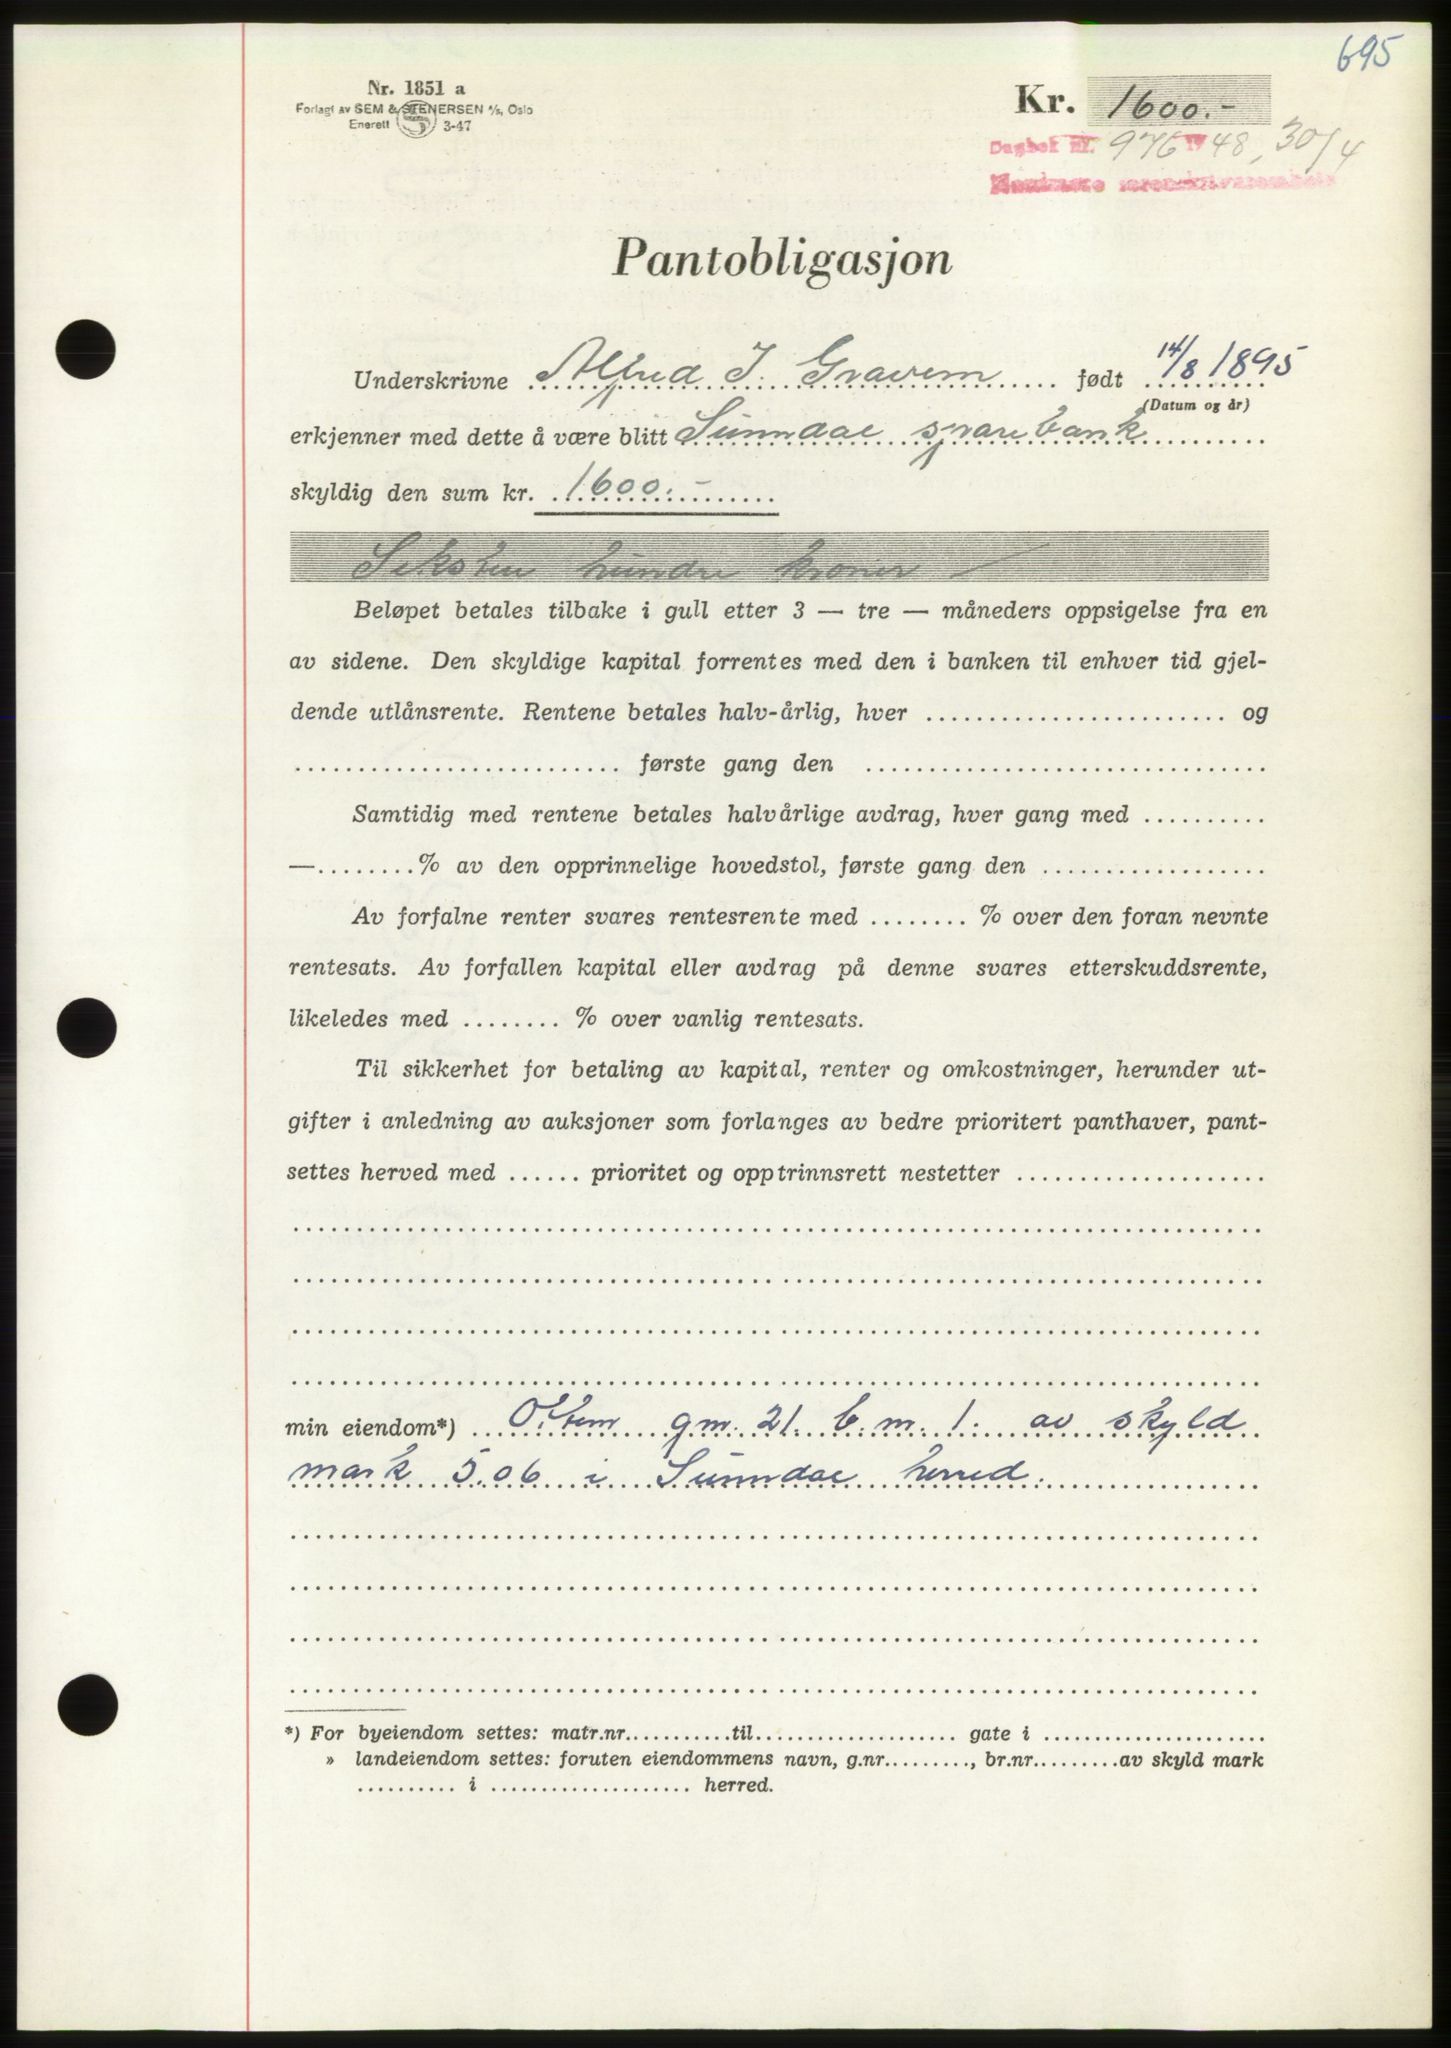 695
Nr. 1851 a
Forlagt av SEM & STENERSEN A/S, Oslo
Enerett 3-47
Kr. 1600.-
Dagbok nr. 976 1948, 30/4
Nordmøre sorenskriverembete
Pantobligasjon
Underskrivne Alfred J. Gravem født 14/8 1895
(Datum og år)
erkjenner med dette å være blitt Sunndal sparebank
skyldig den sum kr. 1600.-
Seksten hundre kroner
Beløpet betales tilbake i gull etter 3 — tre — måneders oppsigelse fra en
av sidene. Den skyldige kapital forrentes med den i banken til enhver tid gjel-
dende utlånsrente. Rentene betales halv-årlig, hver ........................ og
.......................... første gang den ................................
Samtidig med rentene betales halvårlige avdrag, hver gang med ..........
—........% av den opprinnelige hovedstol, første gang den ..................
Av forfalne renter svares rentesrente med ........ % over den foran nevnte
rentesats. Av forfallen kapital eller avdrag på denne svares etterskuddsrente,
likeledes med ........ % over vanlig rentesats.
Til sikkerhet for betaling av kapital, renter og omkostninger, herunder ut-
gifter i anledning av auksjoner som forlanges av bedre prioritert panthaver, pant-
settes herved med ...... prioritet og opptrinnsrett nestetter ....................
min eiendom*) Ottem gm. 21. b.m. 1. av skyld
mark 5.06 i Sunndal herred.
*) For byeiendom settes: matr.nr...........til................... gate i .....................
» landeiendom settes: foruten eiendommens navn, g.nr........., br.nr.........av skyld mark
.......... i .................... herred.